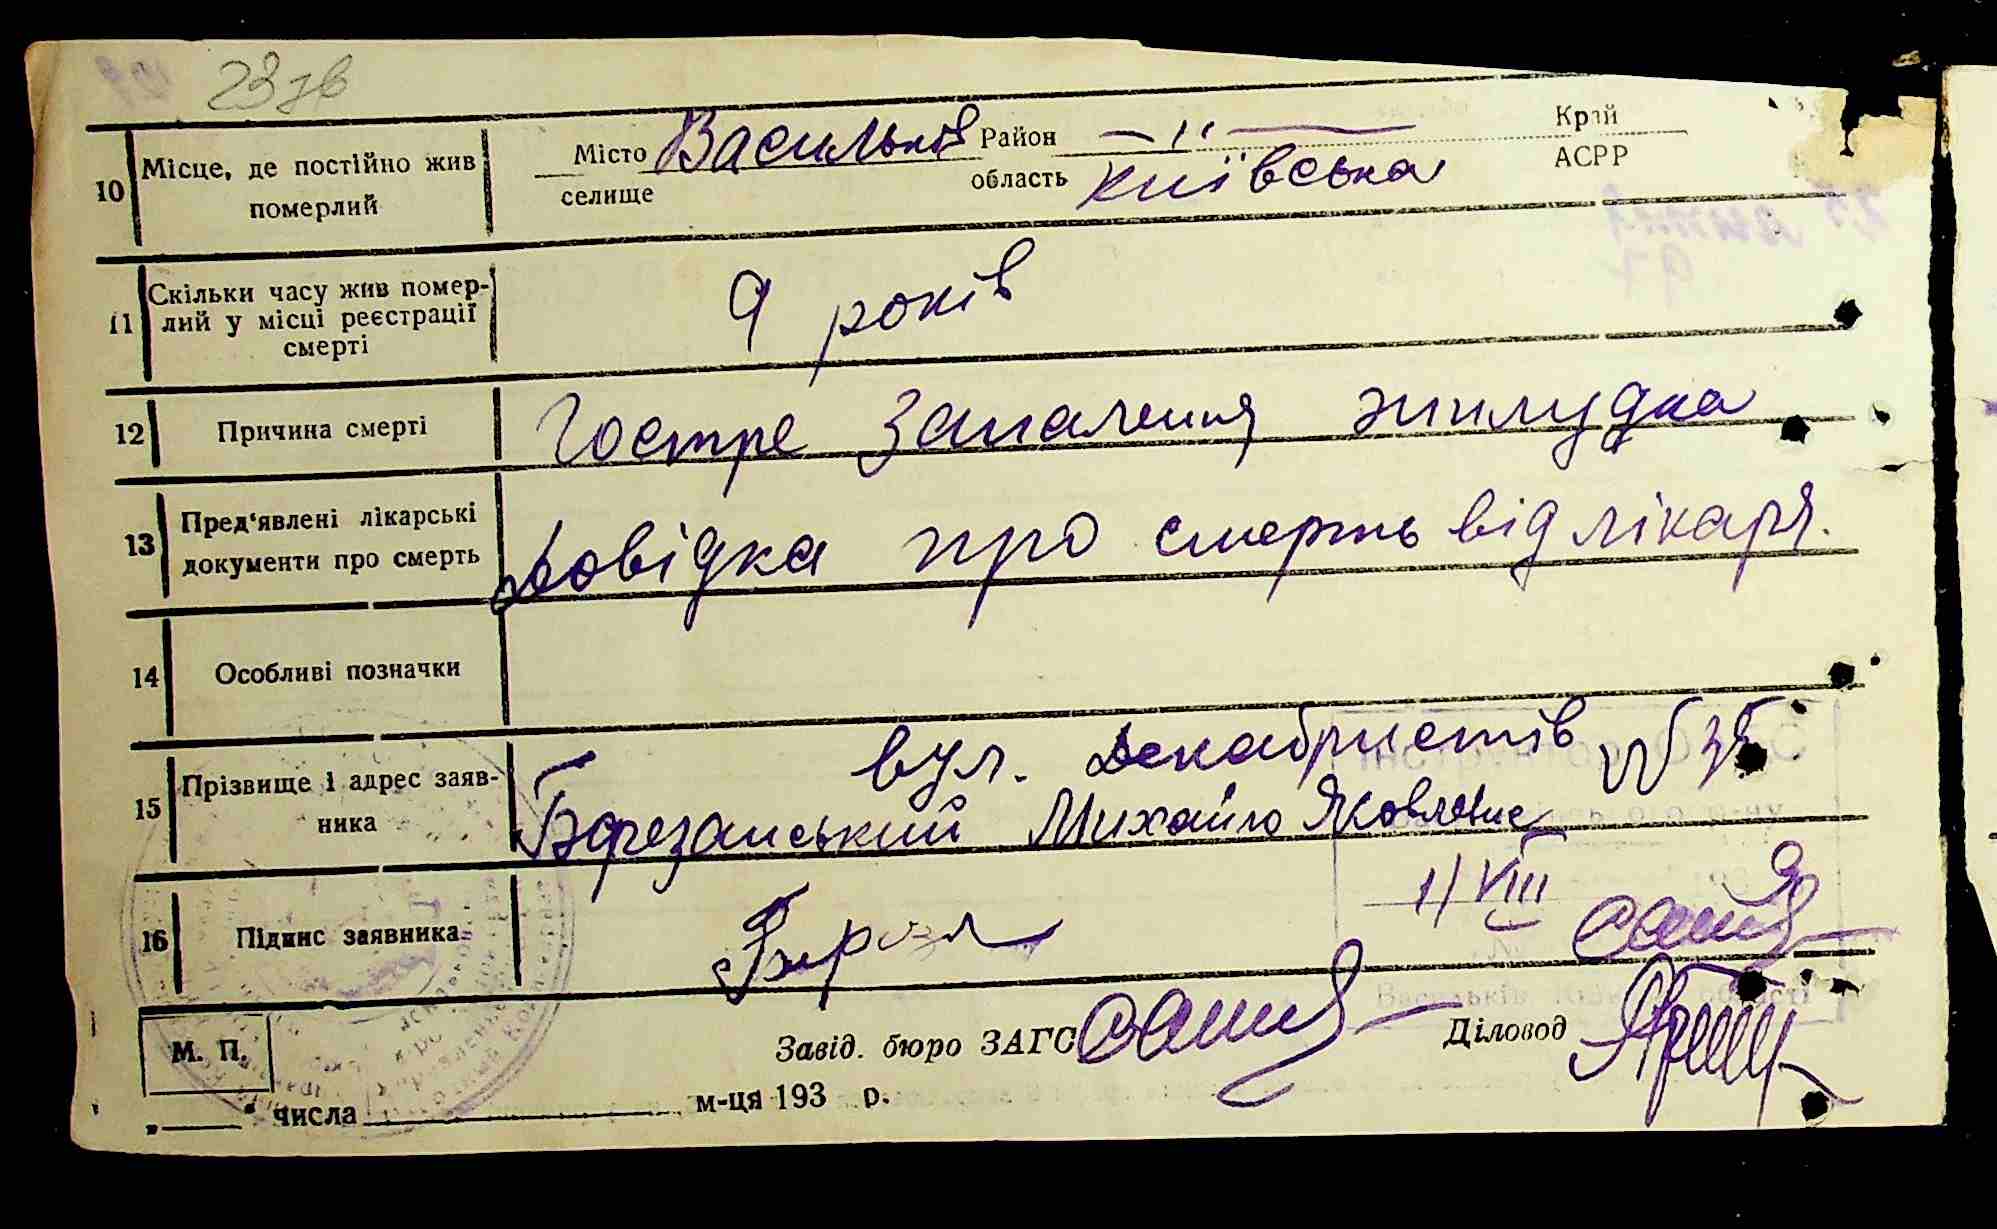 23 зв
10 Місце, де постійно жив померлий
Місто Васильків Район —"—
Край
селище область Київська АСРР
11 Скільки часу жив помер-
лий у місці реєстрації
смерті
9 років
12 Причина смерті Гостре запалення жилудка
13 Пред'явлені лікарські
документи про смерть
Довідка про смерть від лікаря.
14 Особливі позначки
вул. Декабристів №
15 Прізвище і адрес заяв-
ника
Березанський Михайло Яковлевіч
11/VIII
16 Підпис заявника
М. П.
Завід. бюро ЗАГС Діловод
" числа м-ця 193 р.